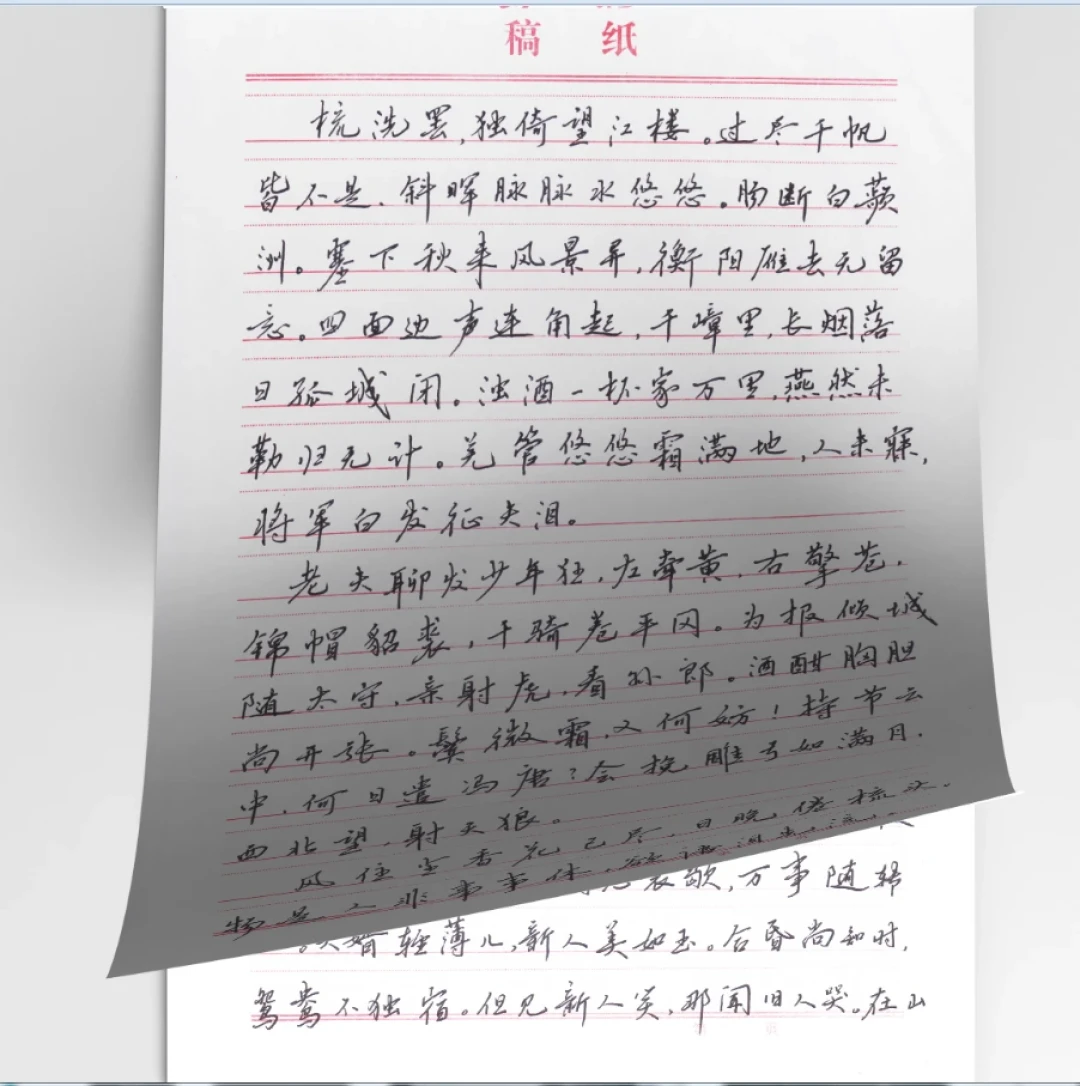 稿 纸
梳洗罢,独倚望江楼。过尽千帆
皆不是,斜晖脉脉水悠悠。肠断白蘋
洲。塞下秋来风景异,衡阳雁去无留
意。四面边声连角起,千嶂里,长烟落
日孤城闭。浊酒一杯家万里,燕然未
勒归无计。羌管悠悠霜满地,人未寐,
将军白发征夫泪。
老夫聊发少年狂,左牵黄,右擎苍,
锦帽貂裘,千骑卷平冈。为报倾城
随太守,亲射虎,看孙郎。酒酣胸胆
尚开张。鬓微霜,又何妨!持节云
中,何日遣冯唐?会挽雕弓如满月,
西北望,射天狼。
风住尘香花已尽,日晚倦梳头.
物是人非事事休,欲语泪先流
衰歇,万事随转
夫婿轻薄儿,新人美如玉。合昏尚知时,
鸳鸯不独宿。但见新人笑,那闻旧人哭。在山